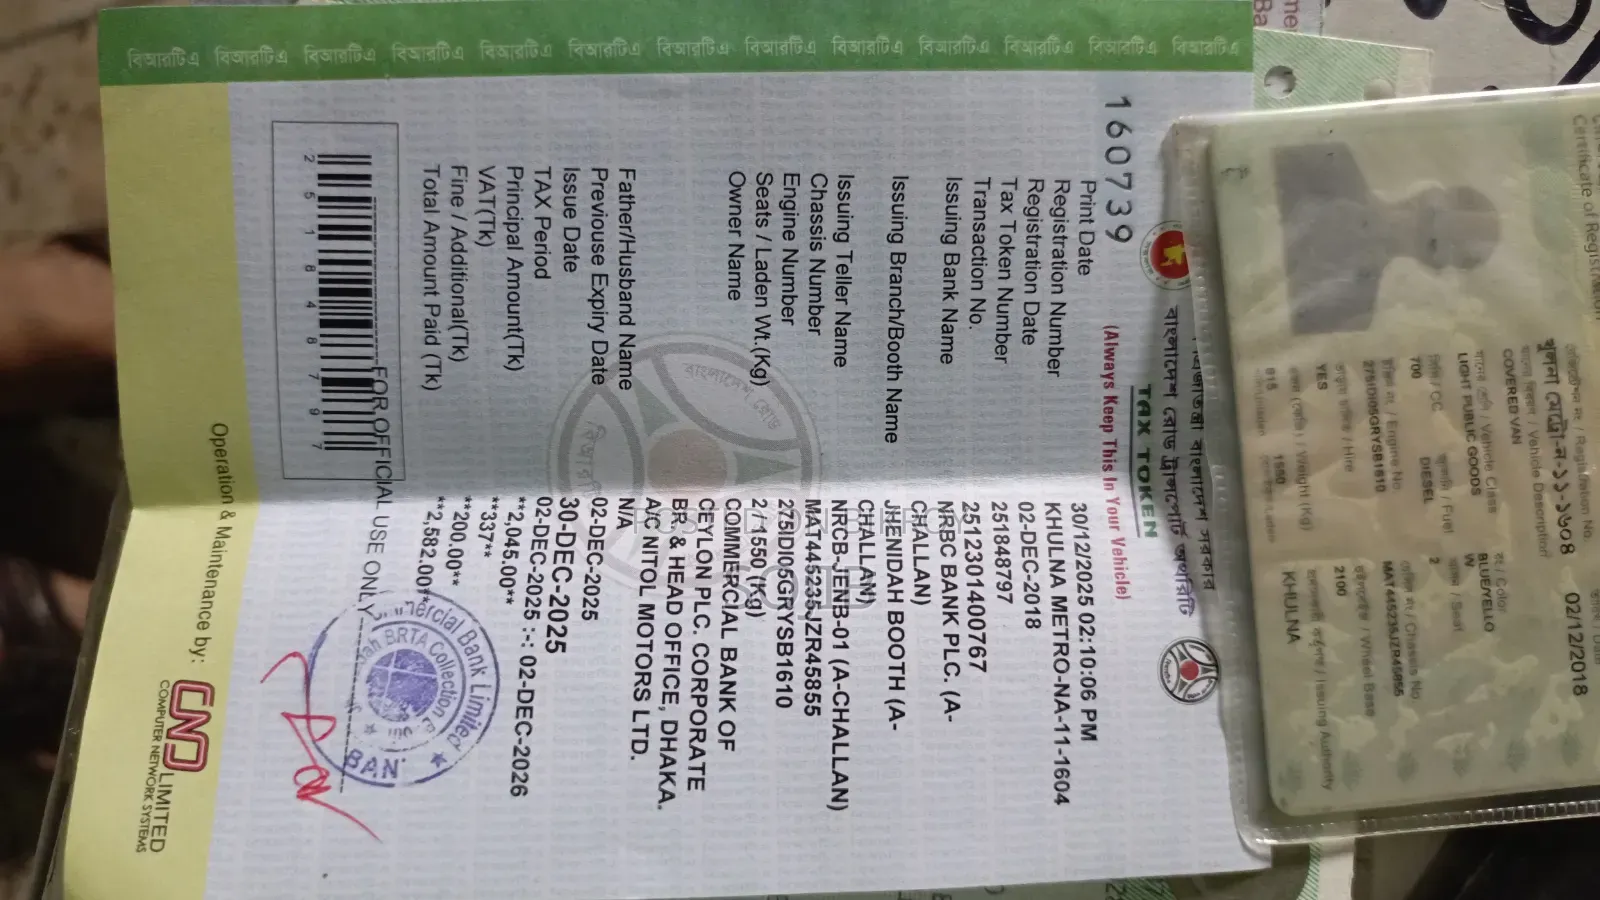 বিআরটিএ বিআরটিএ বিআরটিএ বিআরটিএ বিআরটিএ বিআরটিএ বিআরটিএ বিআরটিএ বিআরটিএ বিআরটিএ বিআরটিএ বিআরটিএ বিআরটিএ
Certificate of Registration
Registration No.
খুলনা মেট্রো-ন-১১-১৬০৪
02/12/2018
Vehicle Description
COVERED VAN
Vehicle Class
LIGHT PUBLIC GOODS
Color
BLUE/YELLO
W
CC
700
Fuel
DIESEL
Seat
2
Engine No
275IDI05GRYSB1610
Chassis No
MAT445235JZR45855
Hire
YES
Wheel Base
2100
Weight (Kg)
815
1550
Issuing Authority
KHULNA
বাংলাদেশ সরকার
বাংলাদেশ রোড ট্রান্সপোর্ট অথরিটি
TAX TOKEN
(Always Keep This In Your Vehicle)
160739
Print Date 30/12/2025 02:10:06 PM
Registration Number KHULNA METRO-NA-11-1604
Registration Date 02-DEC-2018
Tax Token Number 251848797
Transaction No. 2512301400767
Issuing Bank Name NRBC BANK PLC. (A-
CHALLAN)
Issuing Branch/Booth Name JHENIDAH BOOTH (A-
CHALLAN)
Issuing Teller Name NRCB-JENB-01 (A-CHALLAN)
Chassis Number MAT445235JZR45855
Engine Number 275IDI05GRYSB1610
Seats / Laden Wt.(Kg) 2 / 1550 (Kg)
Owner Name COMMERCIAL BANK OF
CEYLON PLC. CORPORATE
BR. & HEAD OFFICE, DHAKA.
A/C NITOL MOTORS LTD.
Father/Husband Name N/A
Previouse Expiry Date 02-DEC-2025
Issue Date 30-DEC-2025
TAX Period 02-DEC-2025 :-: 02-DEC-2026
Principal Amount(Tk) **2,045.00**
VAT(Tk) **337**
Fine / Additional(Tk) **200.00**
Total Amount Paid (Tk) **2,582.00**
FOR OFFICIAL USE ONLY
251848797
mercial Bank Limited
BRTA Collection
BAN
Operation & Maintenance by:
CNS LIMITED
COMPUTER NETWORK SYSTEMS